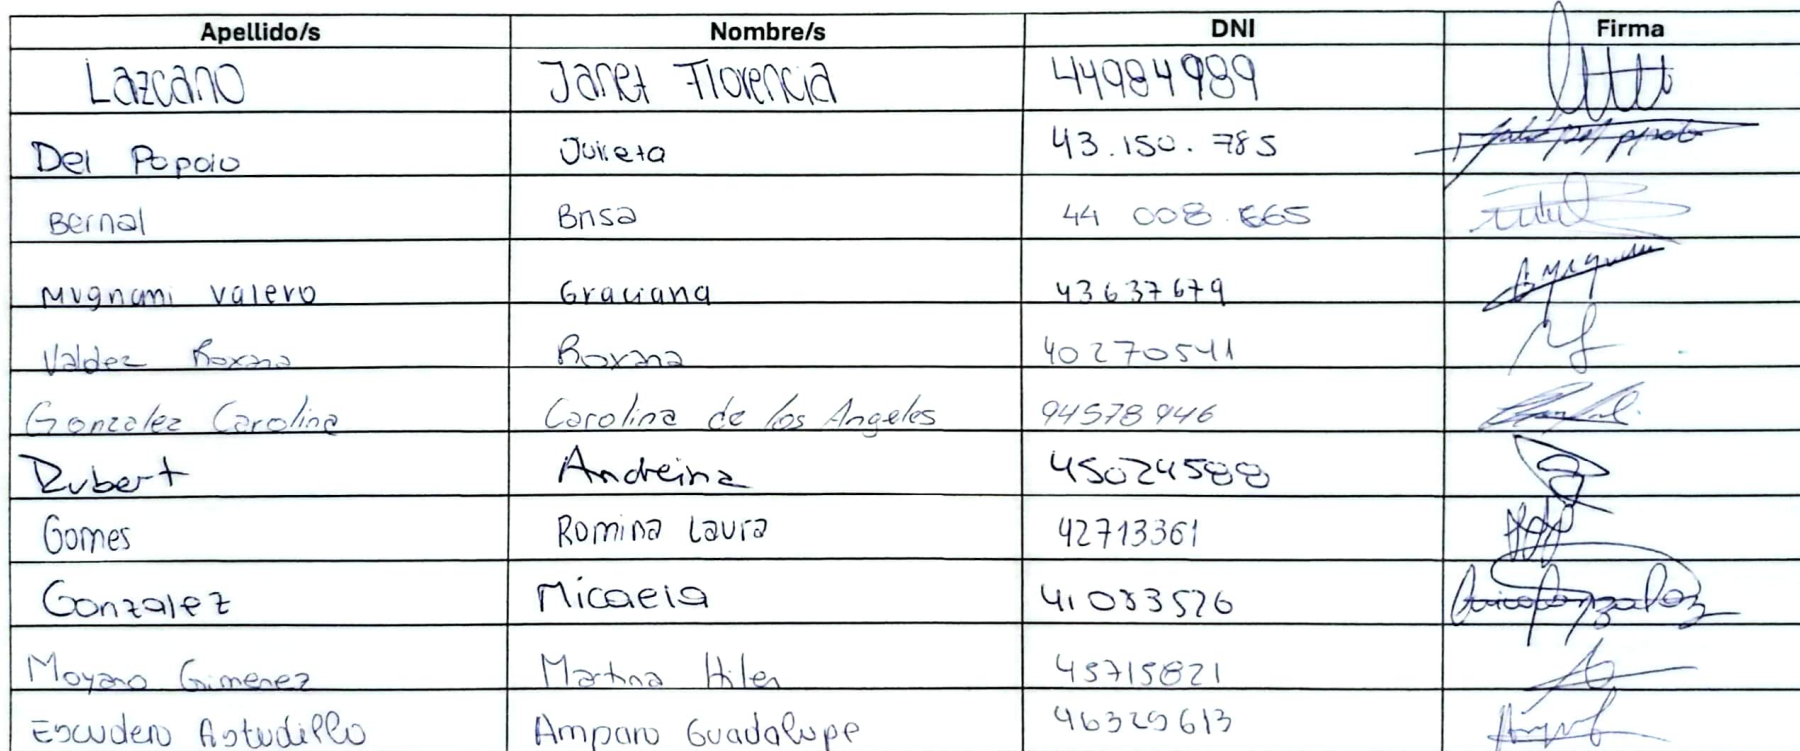 Apellido/s Nombre/s DNI Firma
Lazcano Janet Florencia 44984989
Del Popolo Julieta 43.150.785
Bernal Brisa 44 008.665
Mugnani Valero Graciana 43637679
Valdez Roxana Roxana 40270541
Gonzalez Carolina Carolina de los Angeles 94578946
Rubert Andreina 45024588
Gomes Romina Laura 42713361
Gonzalez Micaela 41083526
Moyano Gimenez Martina 45715821
Escudero Astudillo Amparo Guadalupe 46329613